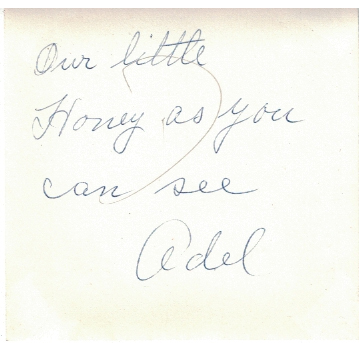 Our little
Honey as you
can see
Adel